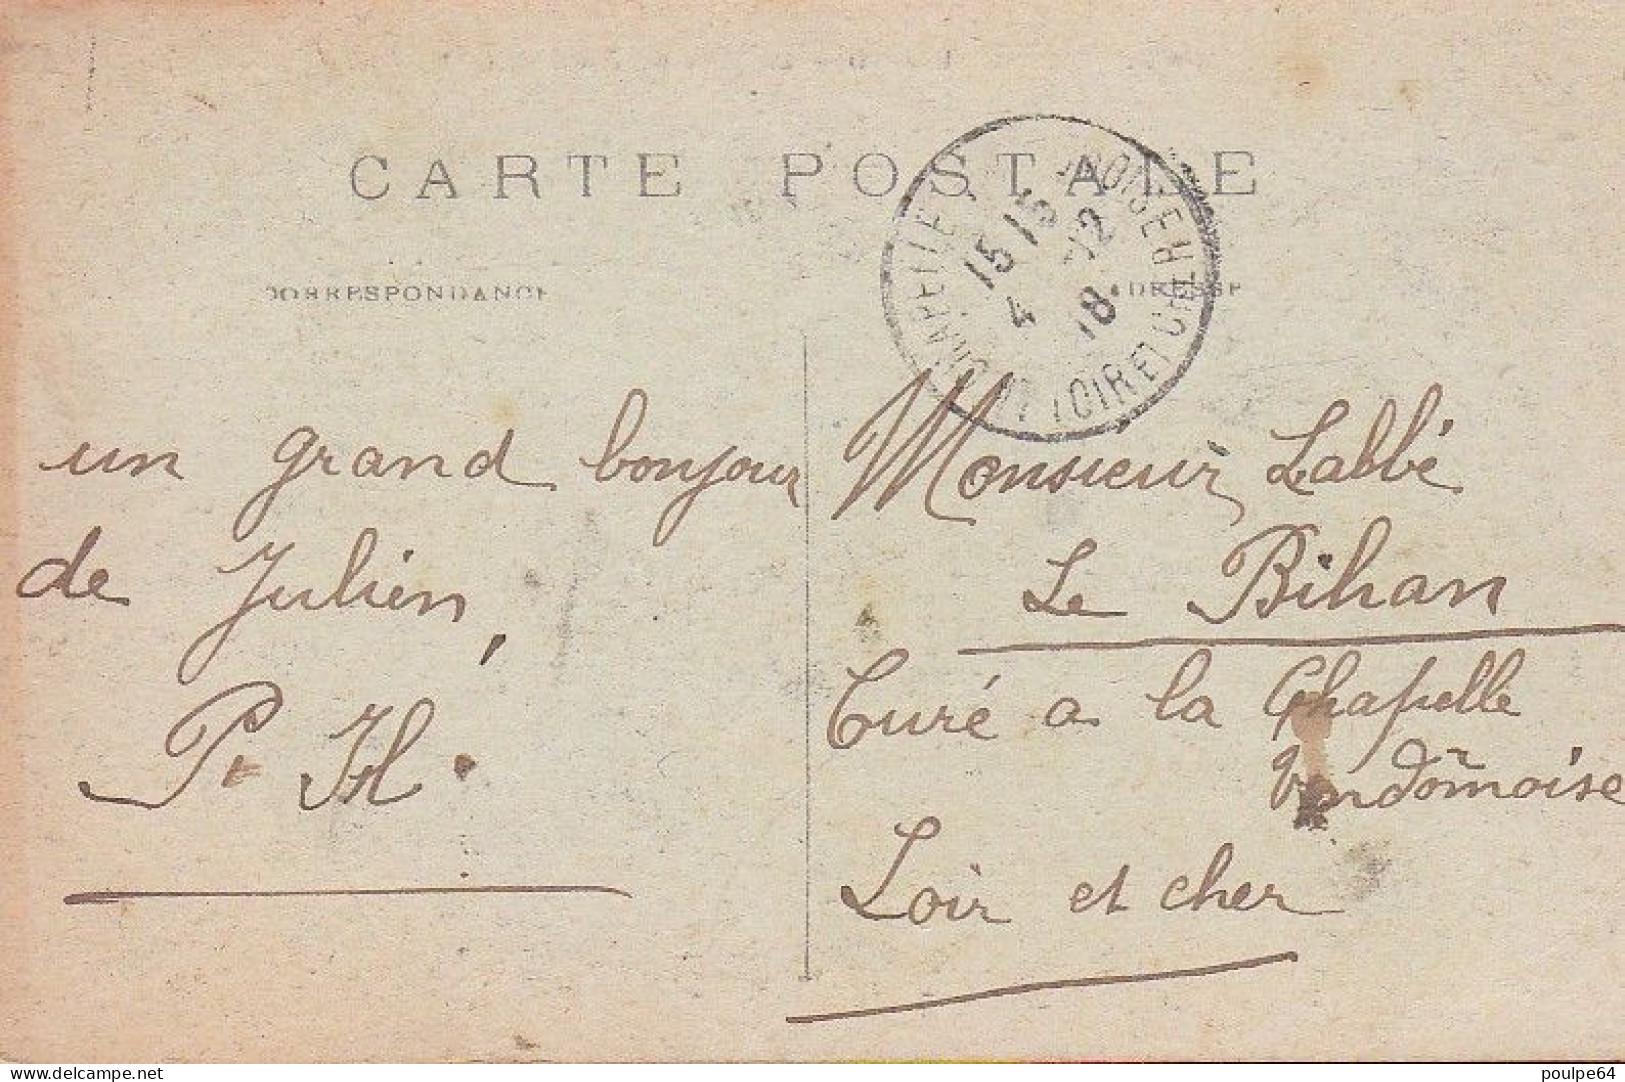 CARTE POSTALE
CORRESPONDANCE
ADRESSE
15 15
4 12
18
LOIR ET CHER
un grand bonjour
de Julien,
P. H.
Monsieur Labbé
Le Bihan
Curé a la Chapelle
Vendômoise
Loir et cher
delcampe.net
poulpe64